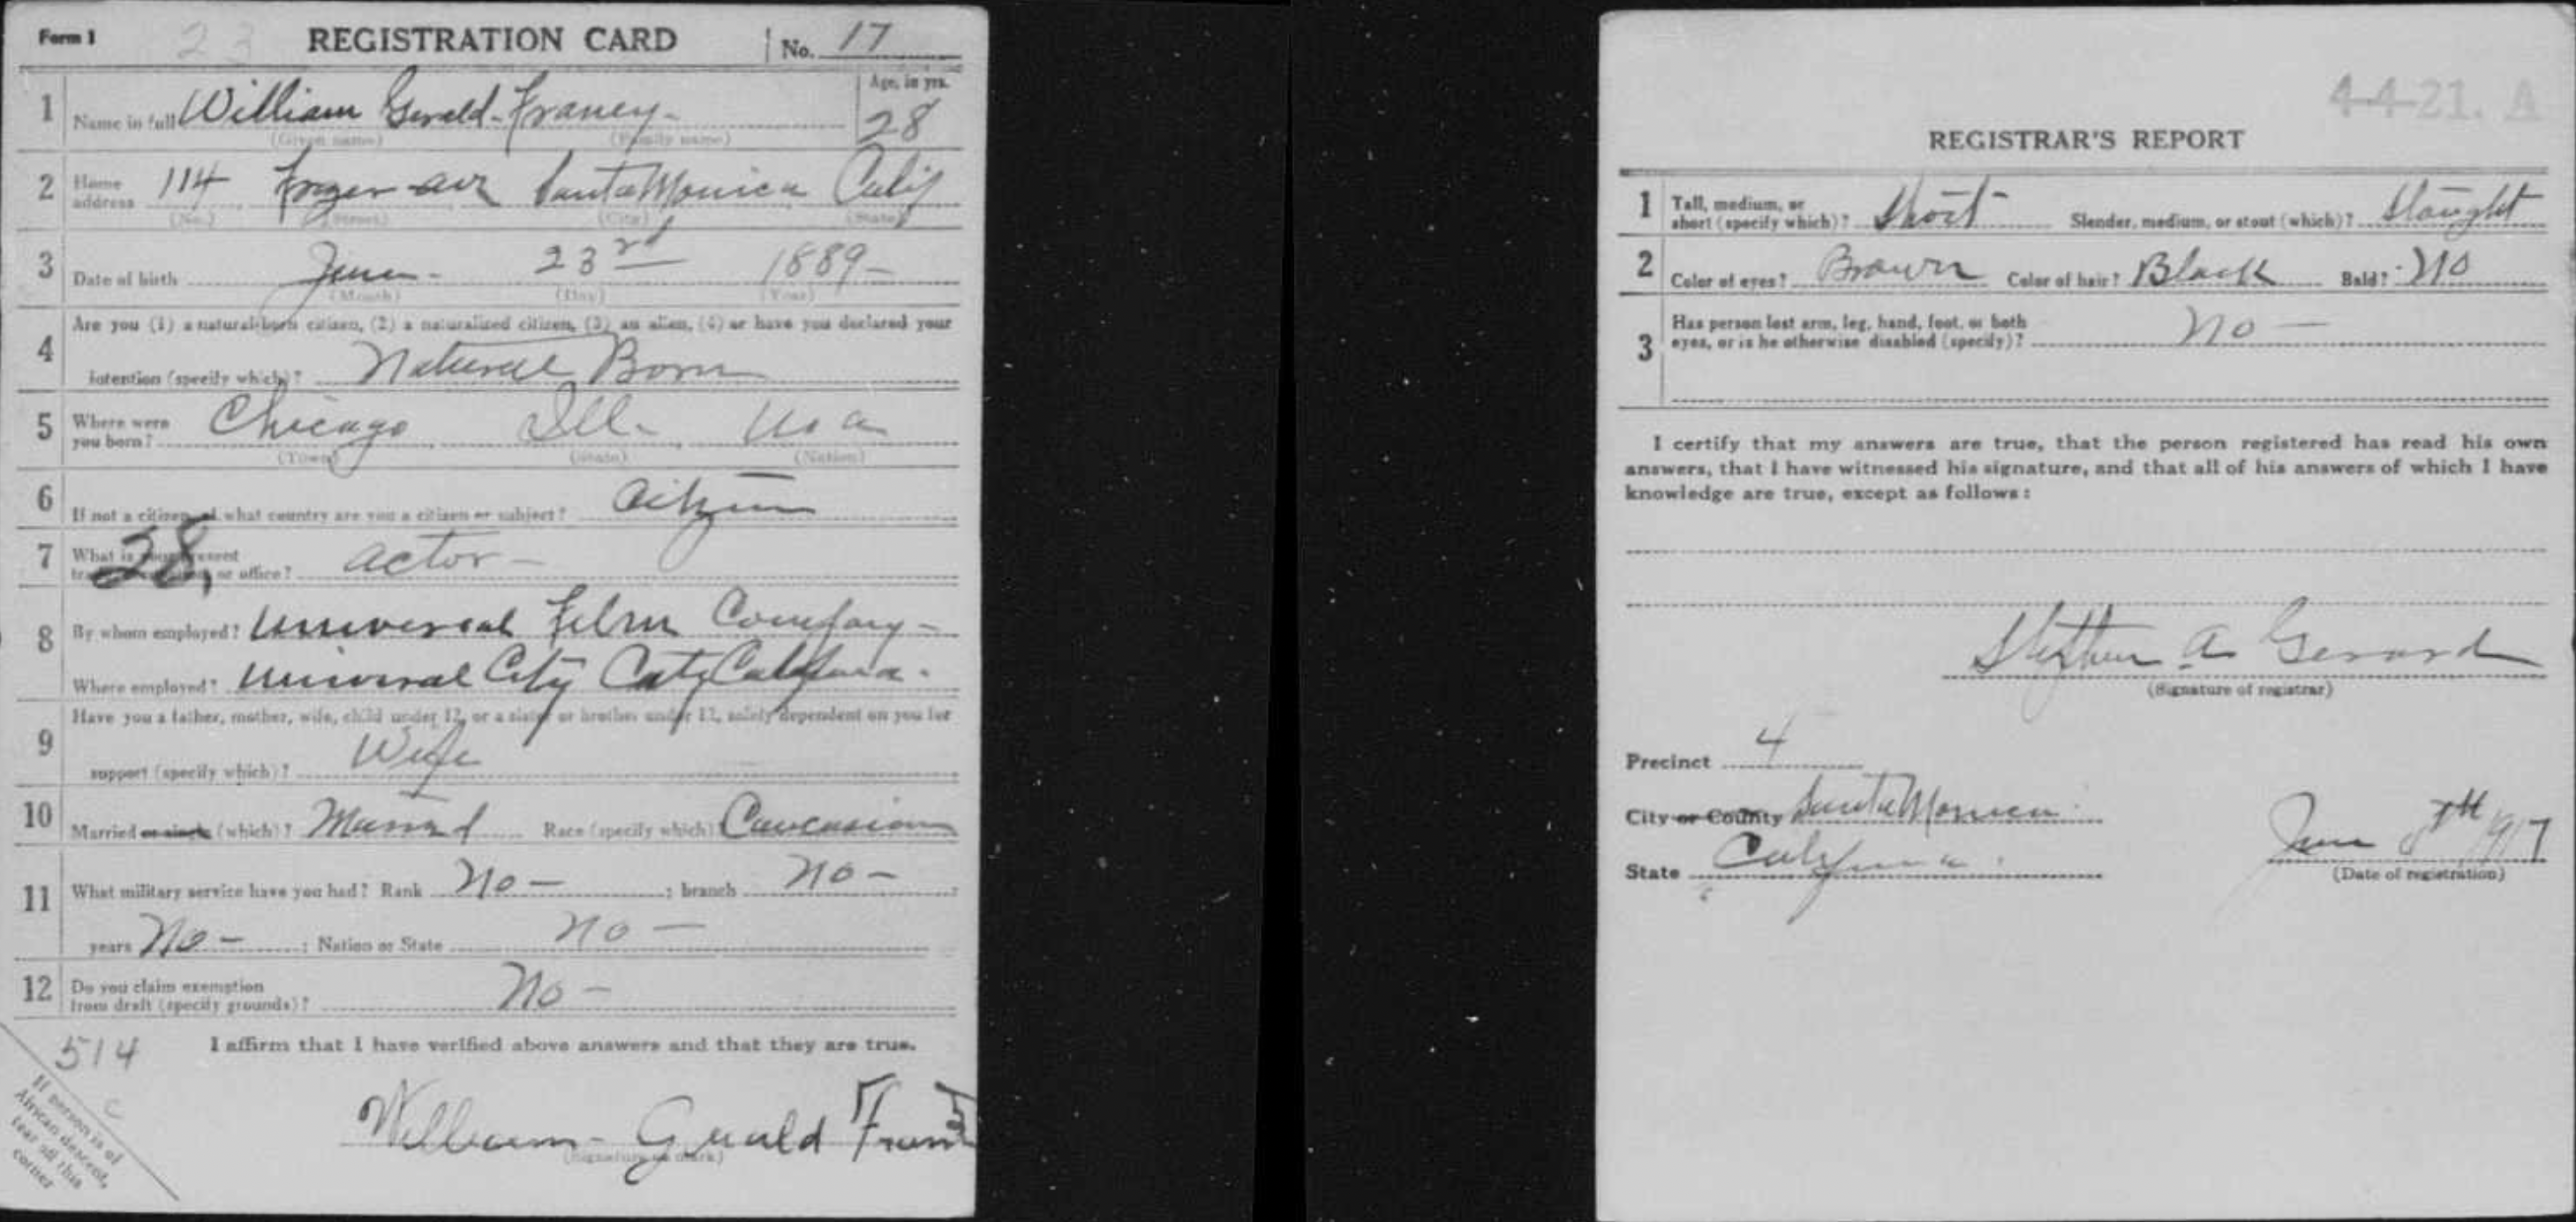 Form 1 23 REGISTRATION CARD No. 17
1 Name in full William Gerald Franey- Age, in yrs. 28
(Given name) (Family name)
2 Home address 114 ave Santa Monica Calif
(No.) (Street) (City) (State)
3 Date of birth June- 23rd 1889-
(Month) (Day) (Year)
Are you (1) a natural-born citizen, (2) a naturalized citizen, (3) an alien, (4) or have you declared your
4 intention (specify which)? Natural Born
5 Where were you born? Chicago Ill- USA
(Town) (State) (Nation)
6 If not a citizen, of what country are you a citizen or subject? Citizen
7 What is your present trade, occupation, or office? actor-
28,
8 By whom employed? Universal Film Company-
Where employed? Universal City City California.
Have you a father, mother, wife, child under 12, or a sister or brother under 12, solely dependent on you for
9 support (specify which)? Wife
10 Married or single (which)? Married Race (specify which)? Caucasian
11 What military service have you had? Rank No- ; branch No- ;
years No- ; Nation or State No-
12 Do you claim exemption
from draft (specify grounds)? No-
514 I affirm that I have verified above answers and that they are true.
William- Gerald Franey
(Signature or mark)
C
If person is of
African descent,
tear off this
corner
4-4-21. A
REGISTRAR'S REPORT
1 Tall, medium, or
short (specify which)? Short Slender, medium, or stout (which)?
2 Color of eyes? Brown Color of hair? Black Bald? No
3 Has person lost arm, leg, hand, foot, or both
eyes, or is he otherwise disabled (specify)? No-
I certify that my answers are true, that the person registered has read his own
answers, that I have witnessed his signature, and that all of his answers of which I have
knowledge are true, except as follows:
Stephen A Gerard
(Signature of registrar)
Precinct 4
City or County Santa Monica
State California. June 5th 1917
(Date of registration)